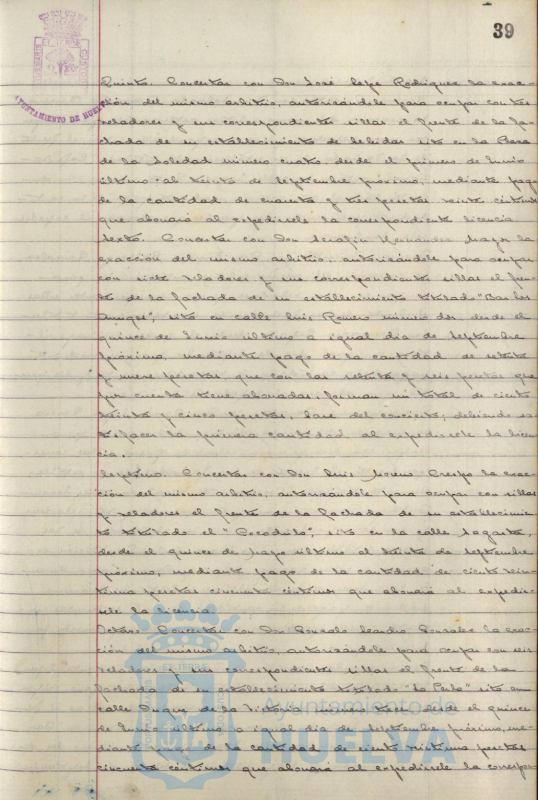 39
AYUNTAMIENTO DE HUELVA
Quinto. Concertar con Don José Rodriguez la exac-
ción del mismo arbitrio, autorizándole para ocupar con tres
veladores y sus correspondientes sillas el frente de la fa-
chada de su establecimiento de bebidas sito en la Plaza
de la Soledad número cuatro, desde el primero de Junio
último al treinta de Septiembre próximo, mediante pago
de la cantidad de cuarenta y tres pesetas veinte céntimos
que abonará al expedirsele la correspondiente licencia
Sexto. Concertar con Don Serafin Hernandez la
exacción del mismo arbitrio, autorizándole para ocupar
con siete veladores y sus correspondientes sillas el fren-
te de la fachada de su establecimiento titulado "Bar los
Amigos", sito en calle Luis Romero número dos desde el
quince de Junio último a igual dia de Septiembre
próximo, mediante pago de la cantidad de setenta
y nueve pesetas, que con las y seis pesetas que
por cuenta tiene abonadas, forman un total de ciento
y cinco pesetas, base del concierto; debiendo sa-
tisfacer la primera cantidad al expedirsele la licen-
cia.
Septimo. Concertar con Don Luis Moreno Crespo la exac-
ción del mismo arbitrio, autorizándole para ocupar con sillas
y veladores el frente de la fachada de su establecimien-
to titulado el "Cocodrilo", sito en la calle Sagasta,
desde el quince de Mayo último al treinta de Septiembre
próximo, mediante pago de la cantidad de ciento
pesetas cincuenta céntimos que abonará al expedir-
sele la licencia
Octavo. Concertar con Don Gonzalo Gonzalez la exac-
ción del mismo arbitrio, autorizándole para ocupar con seis
veladores y sus correspondientes sillas el frente de la
fachada de su establecimiento titulado "La Perla" sito en
calle Duque de la Victoria número desde el quince
de Junio último a igual dia de Septiembre próximo, me-
diante de la cantidad de ciento pesetas
cincuenta céntimos que abonará al expedirsele la correspon-
Ayuntamiento de
HUELVA